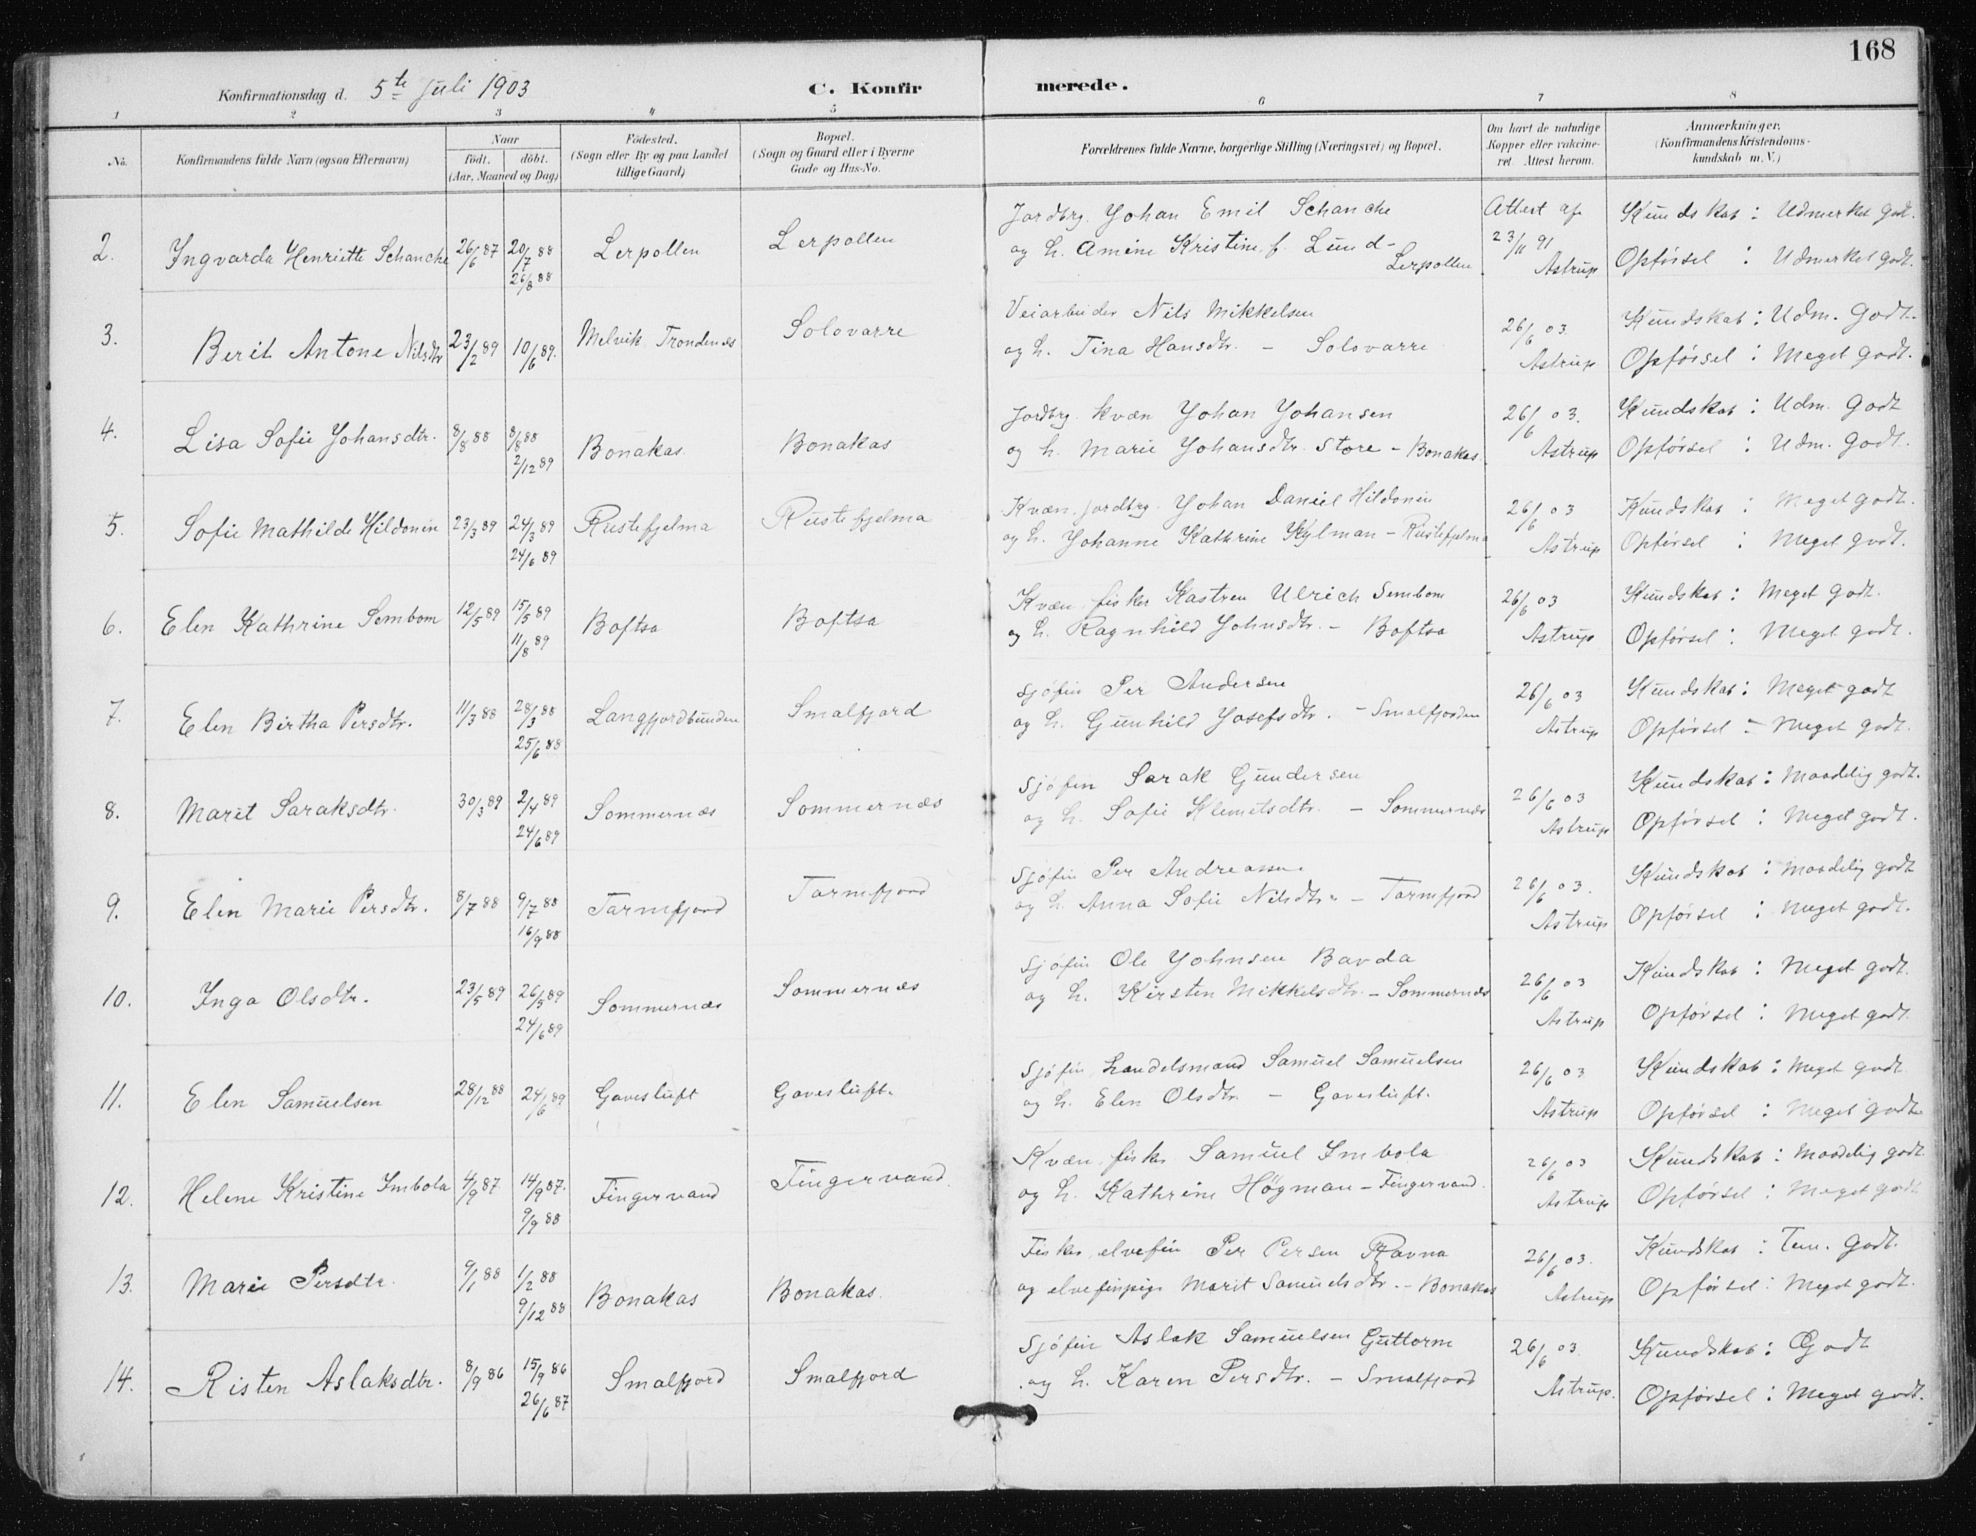 168
Konfirmationsdag d. 5te Juli 1903 C. Konfirmerede.
1 2 3 4 5 6 7 8
No. Konfirmandens fulde Navn (ogsaa Efternavn) Naar født. døbt. (Aar, Maaned og Dag) Fødested. (Sogn eller By og paa Landet tillige Gaard) Bopæl. (Sogn og Gaard eller i Byerne Gade og Hus-No. Forældrenes fulde Navne, borgerlige Stilling (Næringsvei) og Bopæl. Om havt de naturlige Kopper eller vakcineret. Attest herom. Anmærkninger. (Konfirmandens Kristendomskundskab m. V.)
2. Ingvarda Henriette Schanche 26/6 87 20/7 88 26/8 88 Lerpollen Lerpollen Jordbrg. Johan Emil Schanche Attest af Kundskab: Udmerket godt.
og h. Amine Kristine f. Lund - Lerpollen 23/11 91 Astrup Opførsel : Udmerket godt.
3. Berit Antone Nilsdtr 23/2 89 10/6 89. Melvik Trondenæs Solovarre Veiarbeider Nils Mikkelsen 26/6 03 Kundskab: Udm. Godt.
og h. Tina Hansdtr. - Solovarre Astrup Opførsel : Meget godt.
4. Lisa Sofie Johansdtr. 8/8 88 8/8 88 2/12 89 Bonakas Bonakas Jordbrg. kvæn Johan Johansen 26/6 03. Kundskab: Udm. Godt
og h. Marie Johansdtr. Store - Bonakas. Astrup Opførsel : Udm. Godt.
5. Sofie Mathilde Hildonen 23/3 89 24/3 89 24/6 89 Rustefjelma Rustefjelma Kvæn, jordbrg. Johan Daniel Hildonen 26/6 03 Kundskab : Meget godt.
og h. Johanne Kathrine Kylman - Rustefjelma Astrup Opførsel : Meget godt.
6. Elen Kathrine Sembom 12/5 89 15/5 89 11/8 89 Boftsa Boftsa Kvæn, fisker Kastren Ulrich Sembom 26/6 03 Kundskab: Meget Godt.
og h. Ragnhild Johnsdtr. - Boftsa Astrup Opførsel : Meget godt.
7. Elen Birtha Persdtr. 11/3 88 28/3 88 25/6 88 Langfjordbunden Smalfjord Sjøfin Per Andersen 26/6 03 Kundskab: Meget godt
og h. Gunhild Josefsdtr. - Smalfjorden Astrup Opførsel - Meget godt.
8. Marit Saraksdtr. 30/3 89 2/4 89 24/6 89 Sommernæs Sommernæs Sjøfin Sarak Gundersen 26/6 03 Kundskab: Maadelig godt.
og h. Sofie Klemetsdtr. - Sommernæs Astrup Opførsel : Meget godt.
9. Elen Marie Persdtr. 8/7 88 9/7 88 16/9 88 Tarmfjord Tarmfjord Sjøfin Per Andreassen 26/6 03. Kundskab : Maadelig godt
og h. Anna Sofie Nilsdtr. - Tarmfjord Astrup Opførsel : Meget godt.
10. Inga Olsdtr. 23/5 89 26/5 89 24/6 89 Sommernæs Sommernæs Sjøfin Ole Johnsen Bavda 26/6 03 Kundskab : Meget godt.
og h. Kirsten Mikkelsdtr. - Sommernæs Astrup Opførsel : Meget godt.
11. Elen Samuelsen 28/12 88 24/6 89 Gavesluft Gavesluft. Sjøfin, handelsmand Samuel Samuelsen 26/6 03 Kundskab : Meget godt.
og h. Elen Olsdtr. - Gavesluft. Astrup Opførsel : Meget godt.
12. Helene Kristine Imbola 4/9 87 14/9 87. 9/9 88 Fingervand Fingervand. Kvæn, fisker Samuel Imbola 26/6 03 Kundskab : Maadelig godt
og h. Kathrine Høgman - Fingervand. Astrup Opførsel : Meget godt
13. Marie Persdtr. 9/1 88 1/2 88 9/12 88 Bonakas Bonakas. Fisker, elvefin Per Persen Ravna 26/6 03. Kundskab : Tem. Godt.
og elvefinpige Marit Samuelsdtr. - Bonakas Astrup Opførsel : Meget godt.
14. Risten Aslaksdtr. 8/9 86 15/9 86 26/6 87 Smalfjord Smalfjord Sjøfin Aslak Samuelsen Guttorm 26/6 03. Kundskab: Godt
og h. Karen Persdtr. - Smalfjord Astrup. Opførsel : Meget godt.